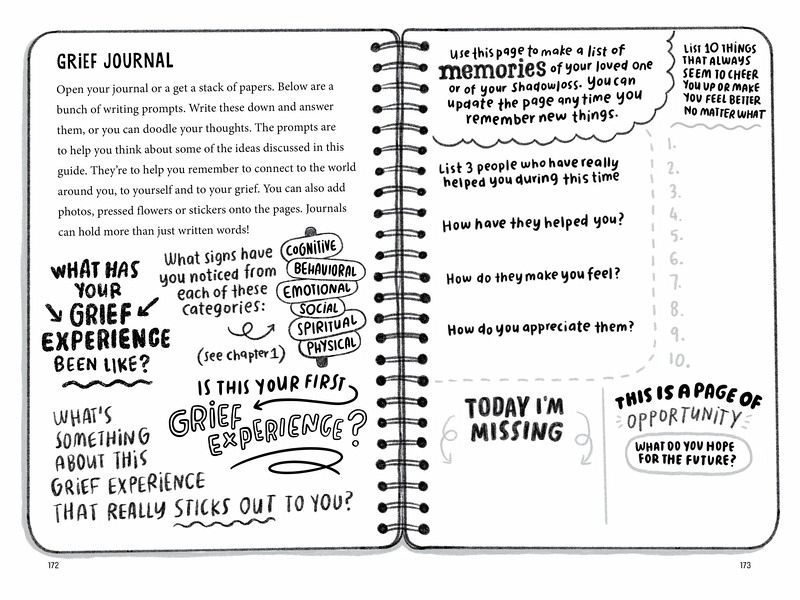 GRIEF JOURNAL
Open your journal or a get a stack of papers. Below are a
bunch of writing prompts. Write these down and answer
them, or you can doodle your thoughts. The prompts are
to help you think about some of the ideas discussed in this
guide. They're to help you remember to connect to the world
around you, to yourself and to your grief. You can also add
photos, pressed flowers or stickers onto the pages. Journals
can hold more than just written words!
WHAT HAS
YOUR
GRIEF
EXPERIENCE
BEEN LIKE?
What signs have
you noticed from
each of these
categories:
(see chapter 1)
COGNITIVE
BEHAVIORAL
EMOTIONAL
SOCIAL
SPIRITUAL
PHYSICAL
IS THIS YOUR FIRST
GRIEF
EXPERIENCE?
WHAT'S
SOMETHING
ABOUT THIS
GRIEF EXPERIENCE
THAT REALLY STICKS OUT TO YOU?
172
Use this page to make a list of
memories of your loved one
or of your shadowloss. You can
update the page any time you
remember new things.
LIST 10 THINGS
THAT ALWAYS
SEEM TO CHEER
YOU UP OR MAKE
YOU FEEL BETTER
NO MATTER WHAT
1.
2.
3.
4.
5.
6.
7.
8.
9.
10.
List 3 people who have really
helped you during this time
How have they helped you?
How do they make you feel?
How do you appreciate them?
TODAY I'M
MISSING
THIS IS A PAGE OF
OPPORTUNITY
WHAT DO YOU HOPE
FOR THE FUTURE?
173